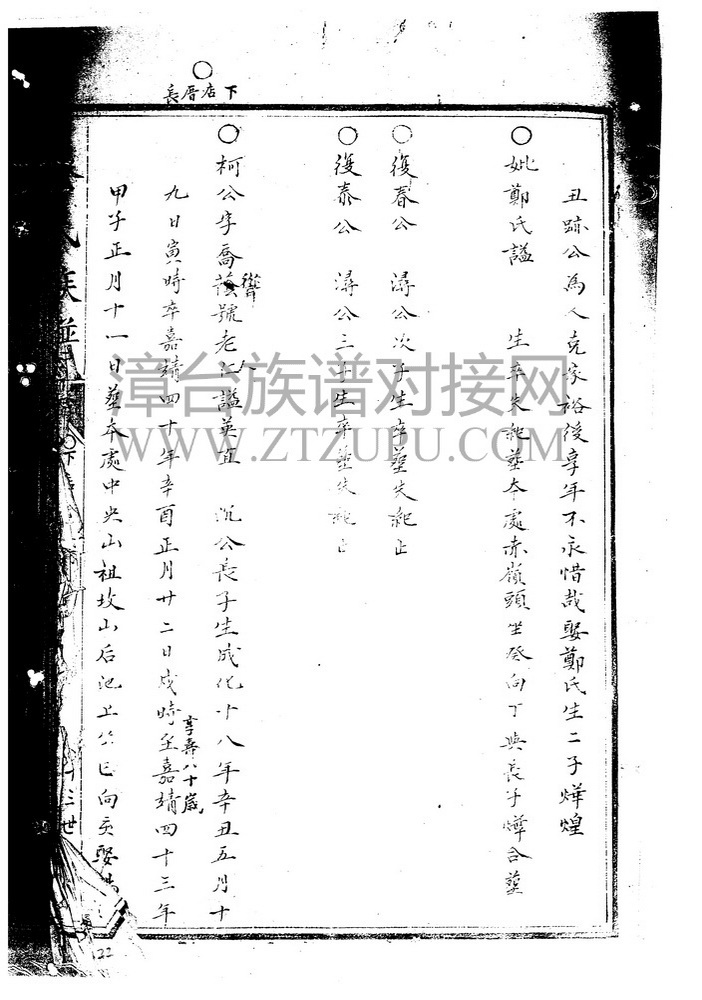 下店厝長
丑跡公為人克家裕後享年不永惜哉娶鄭氏生二子燁煌
○妣鄭氏謚 生卒失記塟本處赤嶺頭坐癸向丁與長子燁合塟
○復春公 潯公次子生卒塟失記止
○復泰公 潯公三子生卒塟失記止
○柯公字喬蔭號老仁謚英直 沉公長子生成化十八年辛丑五月十
九日寅時卒嘉靖四十年辛酉正月廿二日戌時至嘉靖四十三年
享壽八十歲
甲子正月十一日塟本處中央山祖坟山后池上坐巳向亥娶
氏族譜
十三世
122
漳台族谱对接网
WWW.ZTZUPU.COM